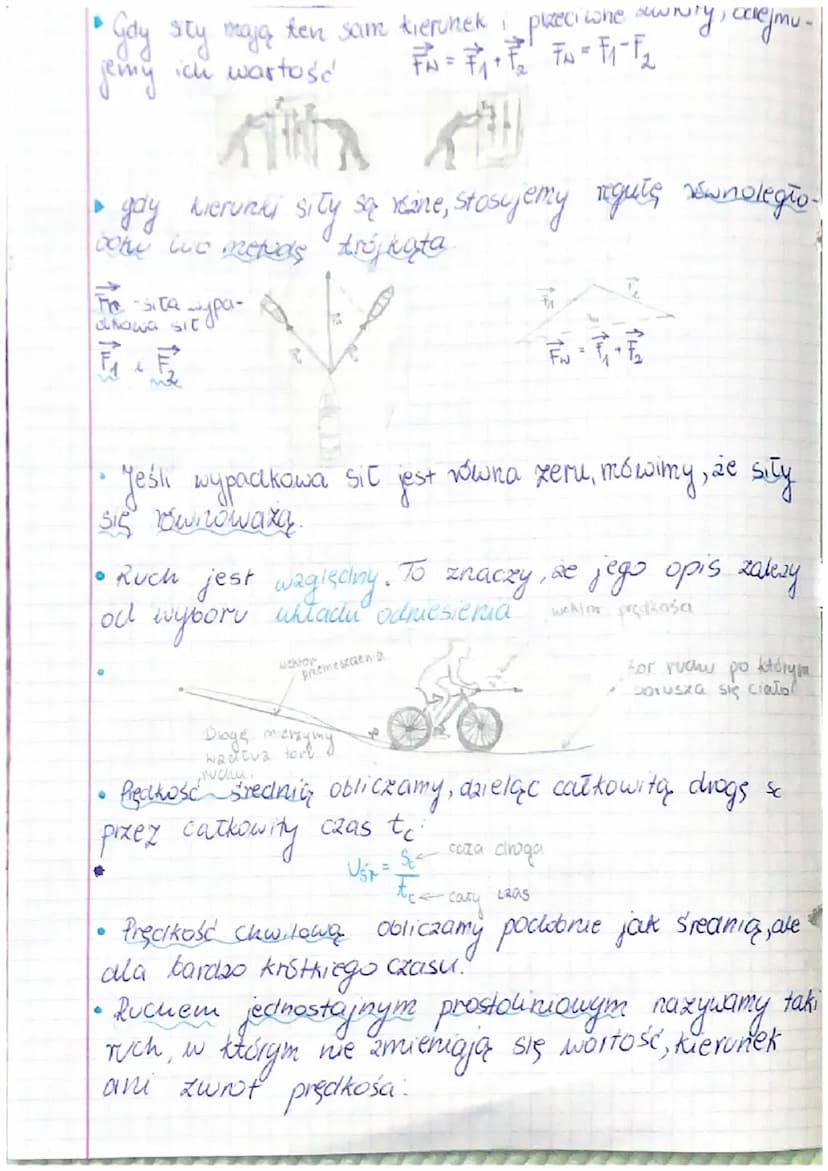 • Gdy siły mają ten sam kierunek i przeciwne zwroty, odejmu-
jemy ich wartość F_W = F_1 + F_2 F_W = F_1 - F_2
▸ gdy kierunki siły są różne, stosujemy regułę równoległo-
boku lub metodę trójkąta
-siła wypa-
dkowa sił
F_1 i F_2
F_1
F_2
F_W = F_1 + F_2
• Jeśli wypadkowa sił jest równa zeru, mówimy, że siły
się równoważą.
• Ruch jest względny. To znaczy, że jego opis zależy
od wyboru układu odniesienia
wektor prędkości
wektor
przemieszczenia
tor ruchu po którym
porusza się ciało
Drogę mierzymy
wzdłuż toru
ruchu.
• Prędkość średnią obliczamy, dzieląc całkowitą drogę s_c
przez całkowity czas t_c:
υ_śr = s_c / t_c
← cała droga
← cały czas
• Prędkość chwilową obliczamy podobnie jak średnią, ale
dla bardzo krótkiego czasu.
• Ruchem jednostajnym prostoliniowym nazywamy taki
ruch, w którym nie zmieniają się wartość, kierunek
ani zwrot prędkości.